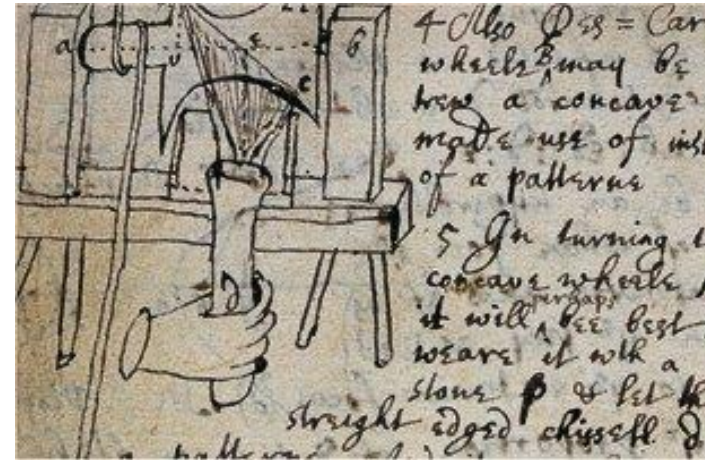 4 Also Des = Car
wheele B may be
hew a concave
made use of ins
of a patterne
5 In turning t
concave wheele
it will perhaps bee best
weare it wth a
stone p & let th
streight edged chissell d
a patterne
a
e
b
c